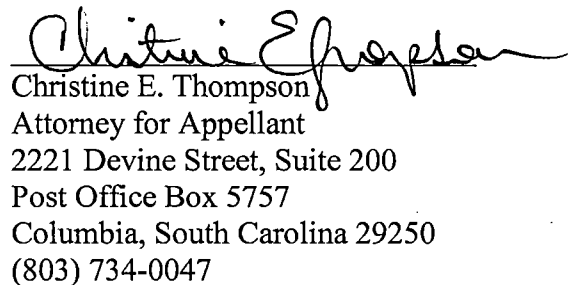 Christine E Thompson
Christine E. Thompson
Attorney for Appellant
2221 Devine Street, Suite 200
Post Office Box 5757
Columbia, South Carolina 29250
(803) 734-0047